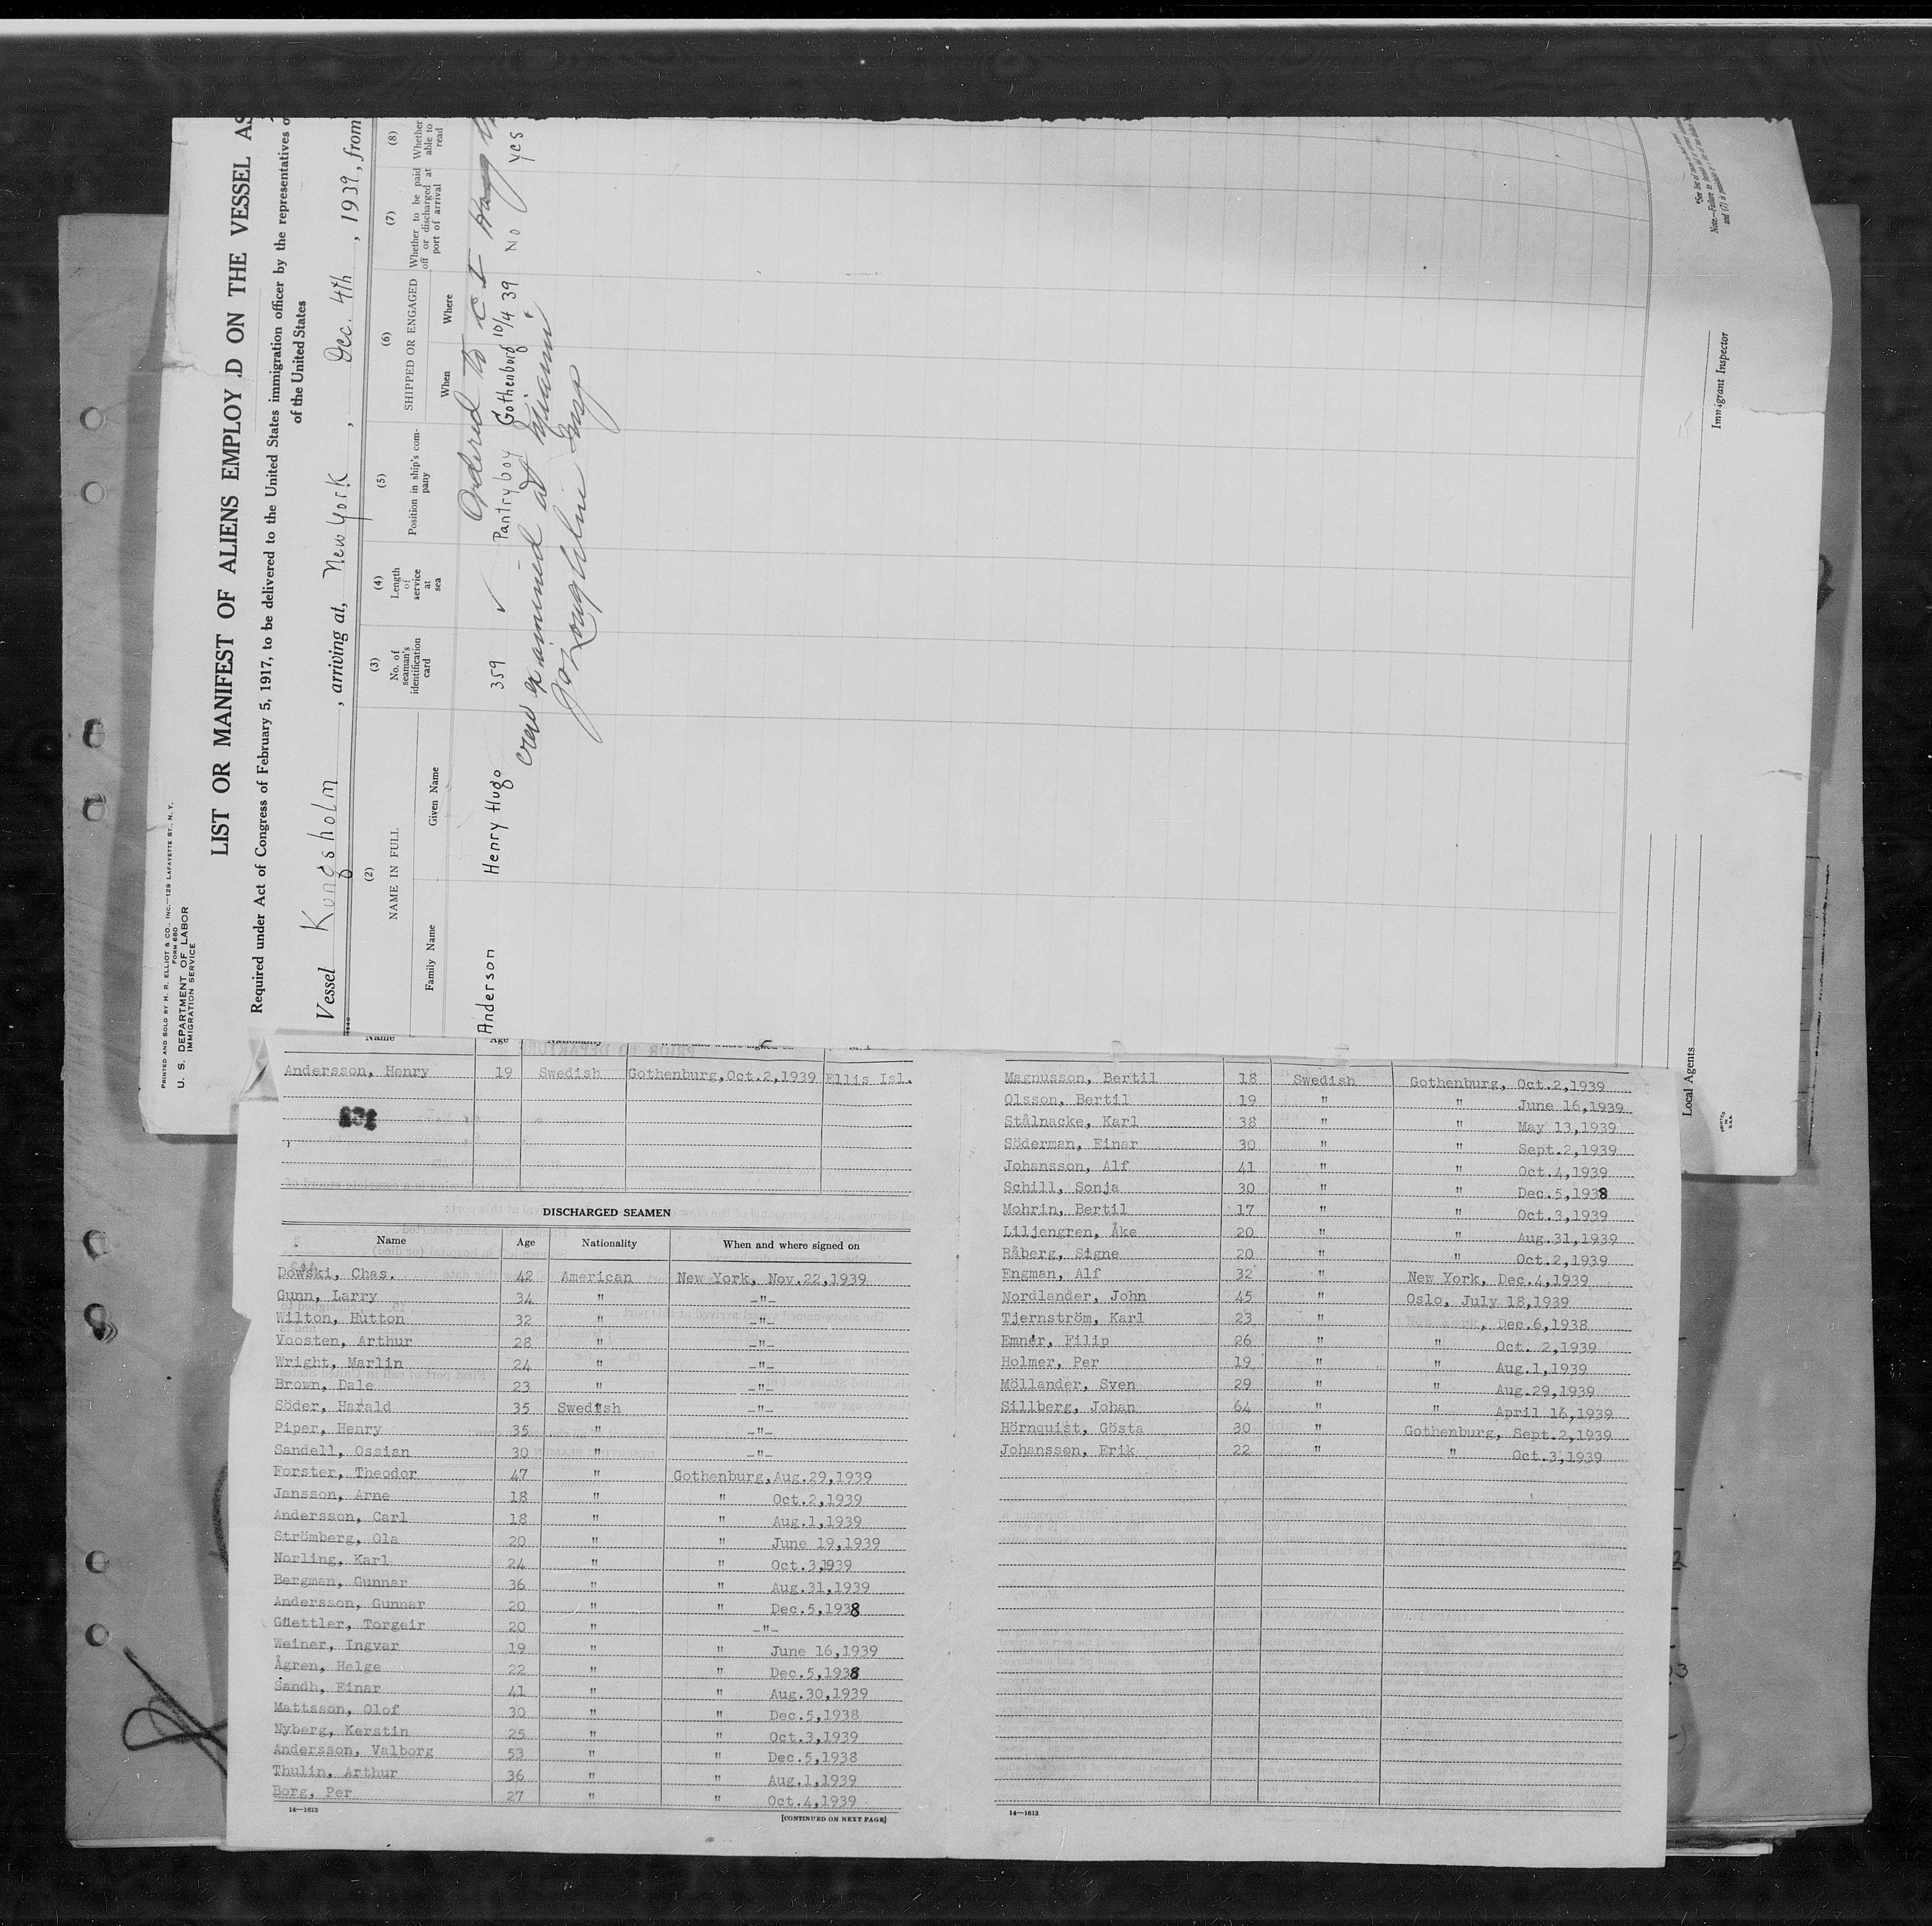 PRINTED AND SOLD BY H. R. ELLIOT & CO., INC.—129 LAFAYETTE ST., N. Y.
FORM 680
U. S. DEPARTMENT OF LABOR
IMMIGRATION SERVICE
LIST OR MANIFEST OF ALIENS EMPLOY.D ON THE VESSEL AS
Required under Act of Congress of February 5, 1917, to be delivered to the United States immigration officer by the representatives o
of the United States
Vessel Kungsholm, arriving at, New York, Dec. 4th, 1939, from
(2) (3) (4) (5) (6) (7) (8)
NAME IN FULL No. of seaman's identification card Length of service at sea Position in ship's company SHIPPED OR ENGAGED Whether to be paid off or discharged at port of arrival Whether able to read
Family Name Given Name When Where
Ordered to
Anderson Henry Hugo 359 ✓ Pantry boy Gothenburg 10/4 39 No yes
Crew examined at Miami
Insp
Immigrant Inspector
Local Agents
Name Age Nationality When and where signed on
Andersson, Henry 19 Swedish Gothenburg, Oct.2,1939 Ellis Isl.
DISCHARGED SEAMEN
Name Age Nationality When and where signed on
Dowski, Chas. 42 American New York, Nov.22,1939
Gunn, Larry 34 " -"-
Wilton, Hutton 32 " -"-
Voosten, Arthur 28 " -"-
Wright, Marlin 24 " -"-
Brown, Dale 23 " -"-
Söder, Harald 35 Swedish -"-
Piper, Henry 35 " -"-
Sandell, Ossian 30 " -"-
Forster, Theodor 47 " Gothenburg, Aug.29,1939
Jansson, Arne 18 " " Oct.2,1939
Andersson, Carl 18 " " Aug.1,1939
Strömberg, Ola 20 " " June 19,1939
Norling, Karl 24 " " Oct.3,1939
Bergman, Gunnar 36 " " Aug.31,1939
Andersson, Gunnar 20 " " Dec.5,1938
Güettler, Torgeir 20 " -"-
Weiner, Ingvar 19 " " June 16,1939
Ågren, Helge 22 " " Dec.5,1938
Sandh, Einar 41 " " Aug.30,1939
Mattsson, Olof 30 " " Dec.5,1938
Nyberg, Kerstin 25 " " Oct.3,1939
Andersson, Valborg 53 " " Dec.5,1938
Thulin, Arthur 36 " " Aug.1,1939
Borg, Per 27 " " Oct.4,1939
14—1613 [CONTINUED ON NEXT PAGE]
Magnusson, Bertil 18 Swedish Gothenburg, Oct.2,1939
Olsson, Bertil 19 " " June 16,1939
Stålnacke, Karl 38 " " May 13,1939
Söderman, Einar 30 " " Sept.2,1939
Johansson, Alf 41 " " Oct.4,1939
Schill, Sonja 30 " " Dec.5,1938
Mohrin, Bertil 17 " " Oct.3,1939
Liljengren, Åke 20 " " Aug.31,1939
Råberg, Signe 20 " " Oct.2,1939
Engman, Alf 32 " New York, Dec.4,1939
Nordlander, John 45 " Oslo, July 18,1939
Tjernström, Karl 23 " New York, Dec.6,1938
Emnér, Filip 26 " " Oct. 2,1939
Holmer, Per 19 " " Aug.1,1939
Möllander, Sven 29 " " Aug.29,1939
Sillberg, Johan 64 " " April 16,1939
Hörnquist, Gösta 30 " Gothenburg, Sept.2,1939
Johansson, Erik 22 " " Oct.3,1939
14—1613